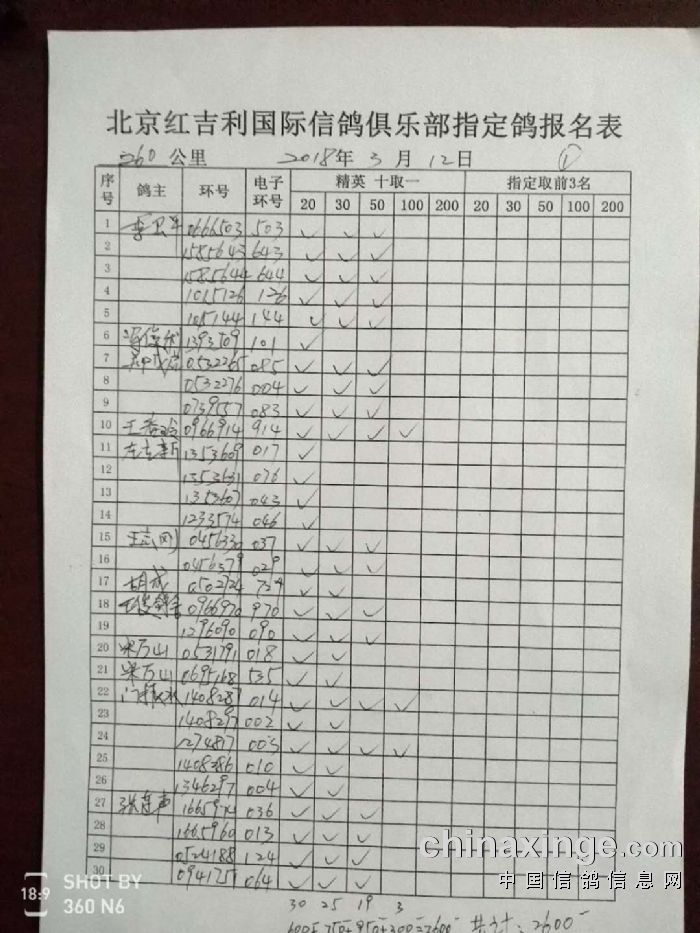 北京红吉利国际信鸽俱乐部指定鸽报名表
260 公里 2018年 3 月 12 日 ①
序号 鸽主 环号 电子环号 精英 十取一 指定取前3名
20 30 50 100 200 20 30 50 100 200
1 李卫军 0666503 503 ✓ ✓ ✓
2 1585643 643 ✓ ✓ ✓
3 1585644 644 ✓ ✓ ✓
4 1015126 126 ✓ ✓ ✓
5 1015144 144 ✓ ✓ ✓
6 1393509 101 ✓
7 0532265 085 ✓ ✓ ✓
8 0532276 004 ✓ ✓ ✓
9 0739557 083 ✓ ✓ ✓
10 0966914 914 ✓ ✓ ✓ ✓
11 左立新 1353609 017 ✓
12 1353631 076 ✓
13 1353607 043 ✓
14 1233574 046 ✓
15 0456330 037 ✓ ✓ ✓
16 0456379 029 ✓ ✓ ✓
17 胡成 0502724 724 ✓ ✓
18 0966970 970 ✓ ✓ ✓
19 1296090 090 ✓ ✓ ✓
20 梁万山 0531791 018 ✓ ✓
21 梁万山 0695168 535 ✓ ✓
22 1408287 014 ✓ ✓ ✓ ✓
23 1408297 002 ✓ ✓
24 1274817 005 ✓ ✓ ✓ ✓
25 1408386 010 ✓ ✓
26 1346297 004 ✓ ✓
27 张连声 1665974 036 ✓ ✓ ✓
28 1665960 013 ✓ ✓ ✓
29 0524188 124 ✓ ✓ ✓
30 0941751 064 ✓ ✓ ✓
30 25 19 3
600+750+950+300=2600 共计：2600
chinaxinge.com
中国信鸽信息网
18:9 SHOT BY
360 N6